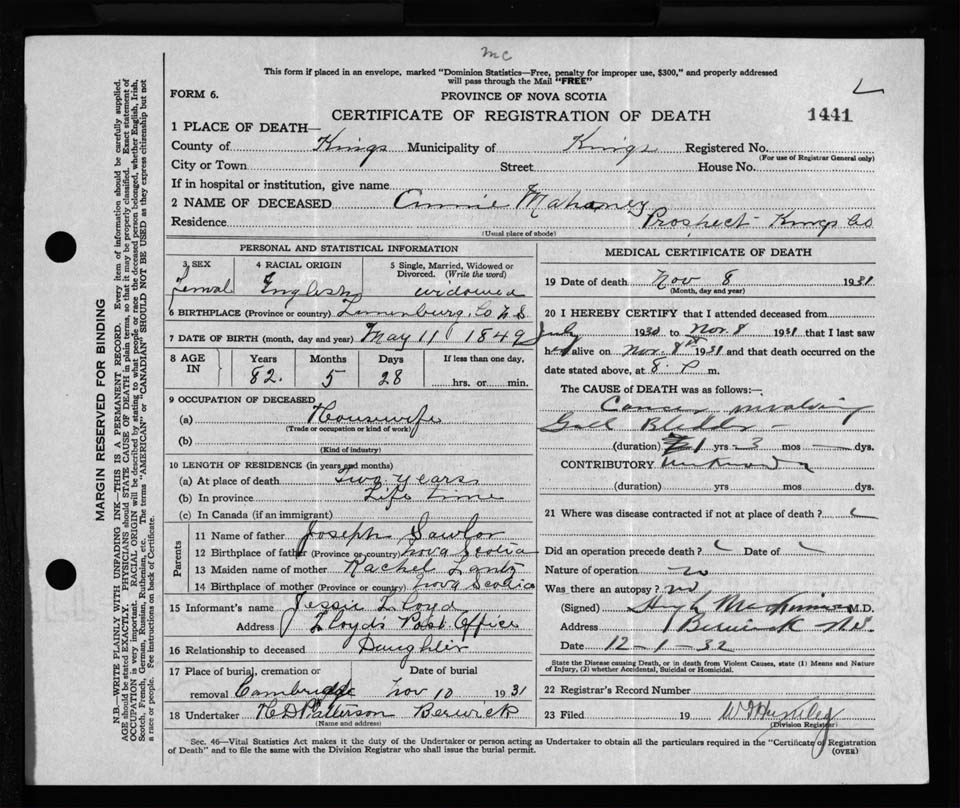 mc
This form if placed in an envelope, marked "Dominion Statistics—Free, penalty for improper use, $300," and properly addressed
will pass through the Mail "FREE"
FORM 6.
PROVINCE OF NOVA SCOTIA
CERTIFICATE OF REGISTRATION OF DEATH
1441
1 PLACE OF DEATH—
County of Kings Municipality of Kings Registered No.
(For use of Registrar General only)
City or Town Street House No.
If in hospital or institution, give name
2 NAME OF DECEASED Annie Mahaney
Residence Prospect Kings Co
(Usual place of abode)
PERSONAL AND STATISTICAL INFORMATION
3 SEX 4 RACIAL ORIGIN 5 Single, Married, Widowed or Divorced. (Write the word)
Femal English widowed
6 BIRTHPLACE (Province or country) Lunenburg, Co N.S.
7 DATE OF BIRTH (month, day and year) May 11 1849
8 AGE IN Years Months Days If less than one day,
82. 5 28 hrs. or min.
9 OCCUPATION OF DECEASED
(a) Housewife
(Trade or occupation or kind of work)
(b)
(Kind of industry)
10 LENGTH OF RESIDENCE (in years and months)
(a) At place of death Two years
(b) In province Life time
(c) In Canada (if an immigrant)
Parents
11 Name of father Joseph Sawlor
12 Birthplace of father (Province or country) Nova Scotia
13 Maiden name of mother Rachel Lantz
14 Birthplace of mother (Province or country) Nova Scotia
15 Informant's name Jessie Lloyd
Address Lloyds Post Office
16 Relationship to deceased Daughter
17 Place of burial, cremation or removal Cambridge Date of burial Nov 10 1931
18 Undertaker H D Patterson Berwick
(Name and address)
MEDICAL CERTIFICATE OF DEATH
19 Date of death Nov 8 1931
(Month, day and year)
20 I HEREBY CERTIFY that I attended deceased from
July 1930 to Nov. 8 1931 that I last saw
her alive on Nov. 8th 1931 and that death occurred on the
date stated above, at 8. P m.
The CAUSE of DEATH was as follows:—
Cancer involving
Gall Bladder —
(duration) 1 yrs 3 mos — dys.
CONTRIBUTORY
(duration) yrs. mos. dys.
21 Where was disease contracted if not at place of death?
Did an operation precede death? Date of
Nature of operation no
Was there an autopsy? no
(Signed) Hugh MacKinnon M.D.
Address Berwick N.S.
Date 12-1-32
State the Disease causing Death, or in death from Violent Causes, state (1) Means and Nature
of Injury, (2) whether Accidental, Suicidal or Homicidal.
22 Registrar's Record Number
23 Filed 19
(Division Registrar)
Sec. 46—Vital Statistics Act makes it the duty of the Undertaker or person acting as Undertaker to obtain all the particulars required in the "Certificate of Registration
of Death" and to file the same with the Division Registrar who shall issue the burial permit.
(OVER)
MARGIN RESERVED FOR BINDING
N.B.—WRITE PLAINLY WITH UNFADING INK—THIS IS A PERMANENT RECORD. Every item of information should be carefully supplied.
AGE should be stated EXACTLY. PHYSICIANS should STATE CAUSE OF DEATH in plain terms, so that it may be properly classified. Exact statement of
OCCUPATION is very important. RACIAL ORIGIN will be described by stating to what people or race the deceased person belonged, whether English, Irish,
Scotch, French, German, Russian, Ruthenian, etc. The terms "AMERICAN" or "CANADIAN" SHOULD NOT BE USED as they express citizenship but not
a race or people. See instructions on back of Certificate.